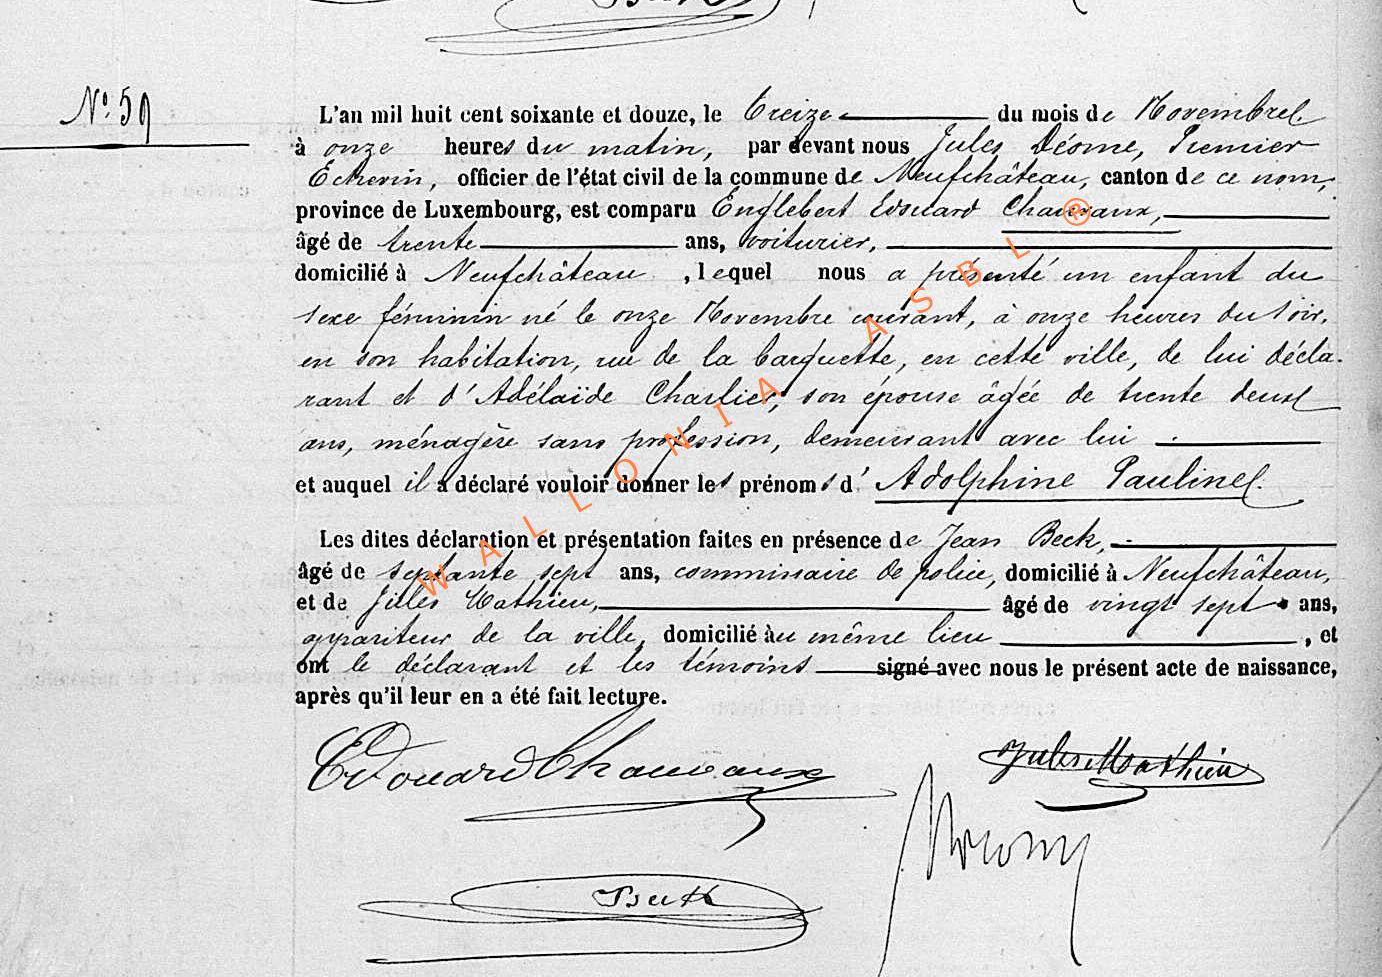 N° 59
L'an mil huit cent soixante et douze, le treize du mois de Novembre
à onze heures du matin, par devant nous Jules Déome, Premier
Echevin, officier de l'état civil de la commune de Neufchâteau, canton de ce nom,
province de Luxembourg, est comparu Englebert Edouard Chauvaux,
âgé de trente ans, voiturier,
domicilié à Neufchâteau, lequel nous a présenté un enfant du
sexe féminin né le onze Novembre courant, à onze heures du soir,
en son habitation, rue de la barquette, en cette ville, de lui décla-
rant et d'Adélaïde Charlier, son épouse âgée de trente deux
ans, ménagère sans profession, demeurant avec lui
et auquel il a déclaré vouloir donner les prénoms d'Adolphine Pauline.
Les dites déclaration et présentation faites en présence de Jean Beck,
âgé de septante sept ans, commissaire de police, domicilié à Neufchâteau,
et de Jules Mathieu, âgé de vingt sept ans,
appariteur de la ville, domicilié au même lieu, et
ont le déclarant et les témoins signé avec nous le présent acte de naissance,
après qu'il leur en a été fait lecture.
Edouard Chauvaux
Jules Mathieu
Beck
WALLONIA ASBL ®